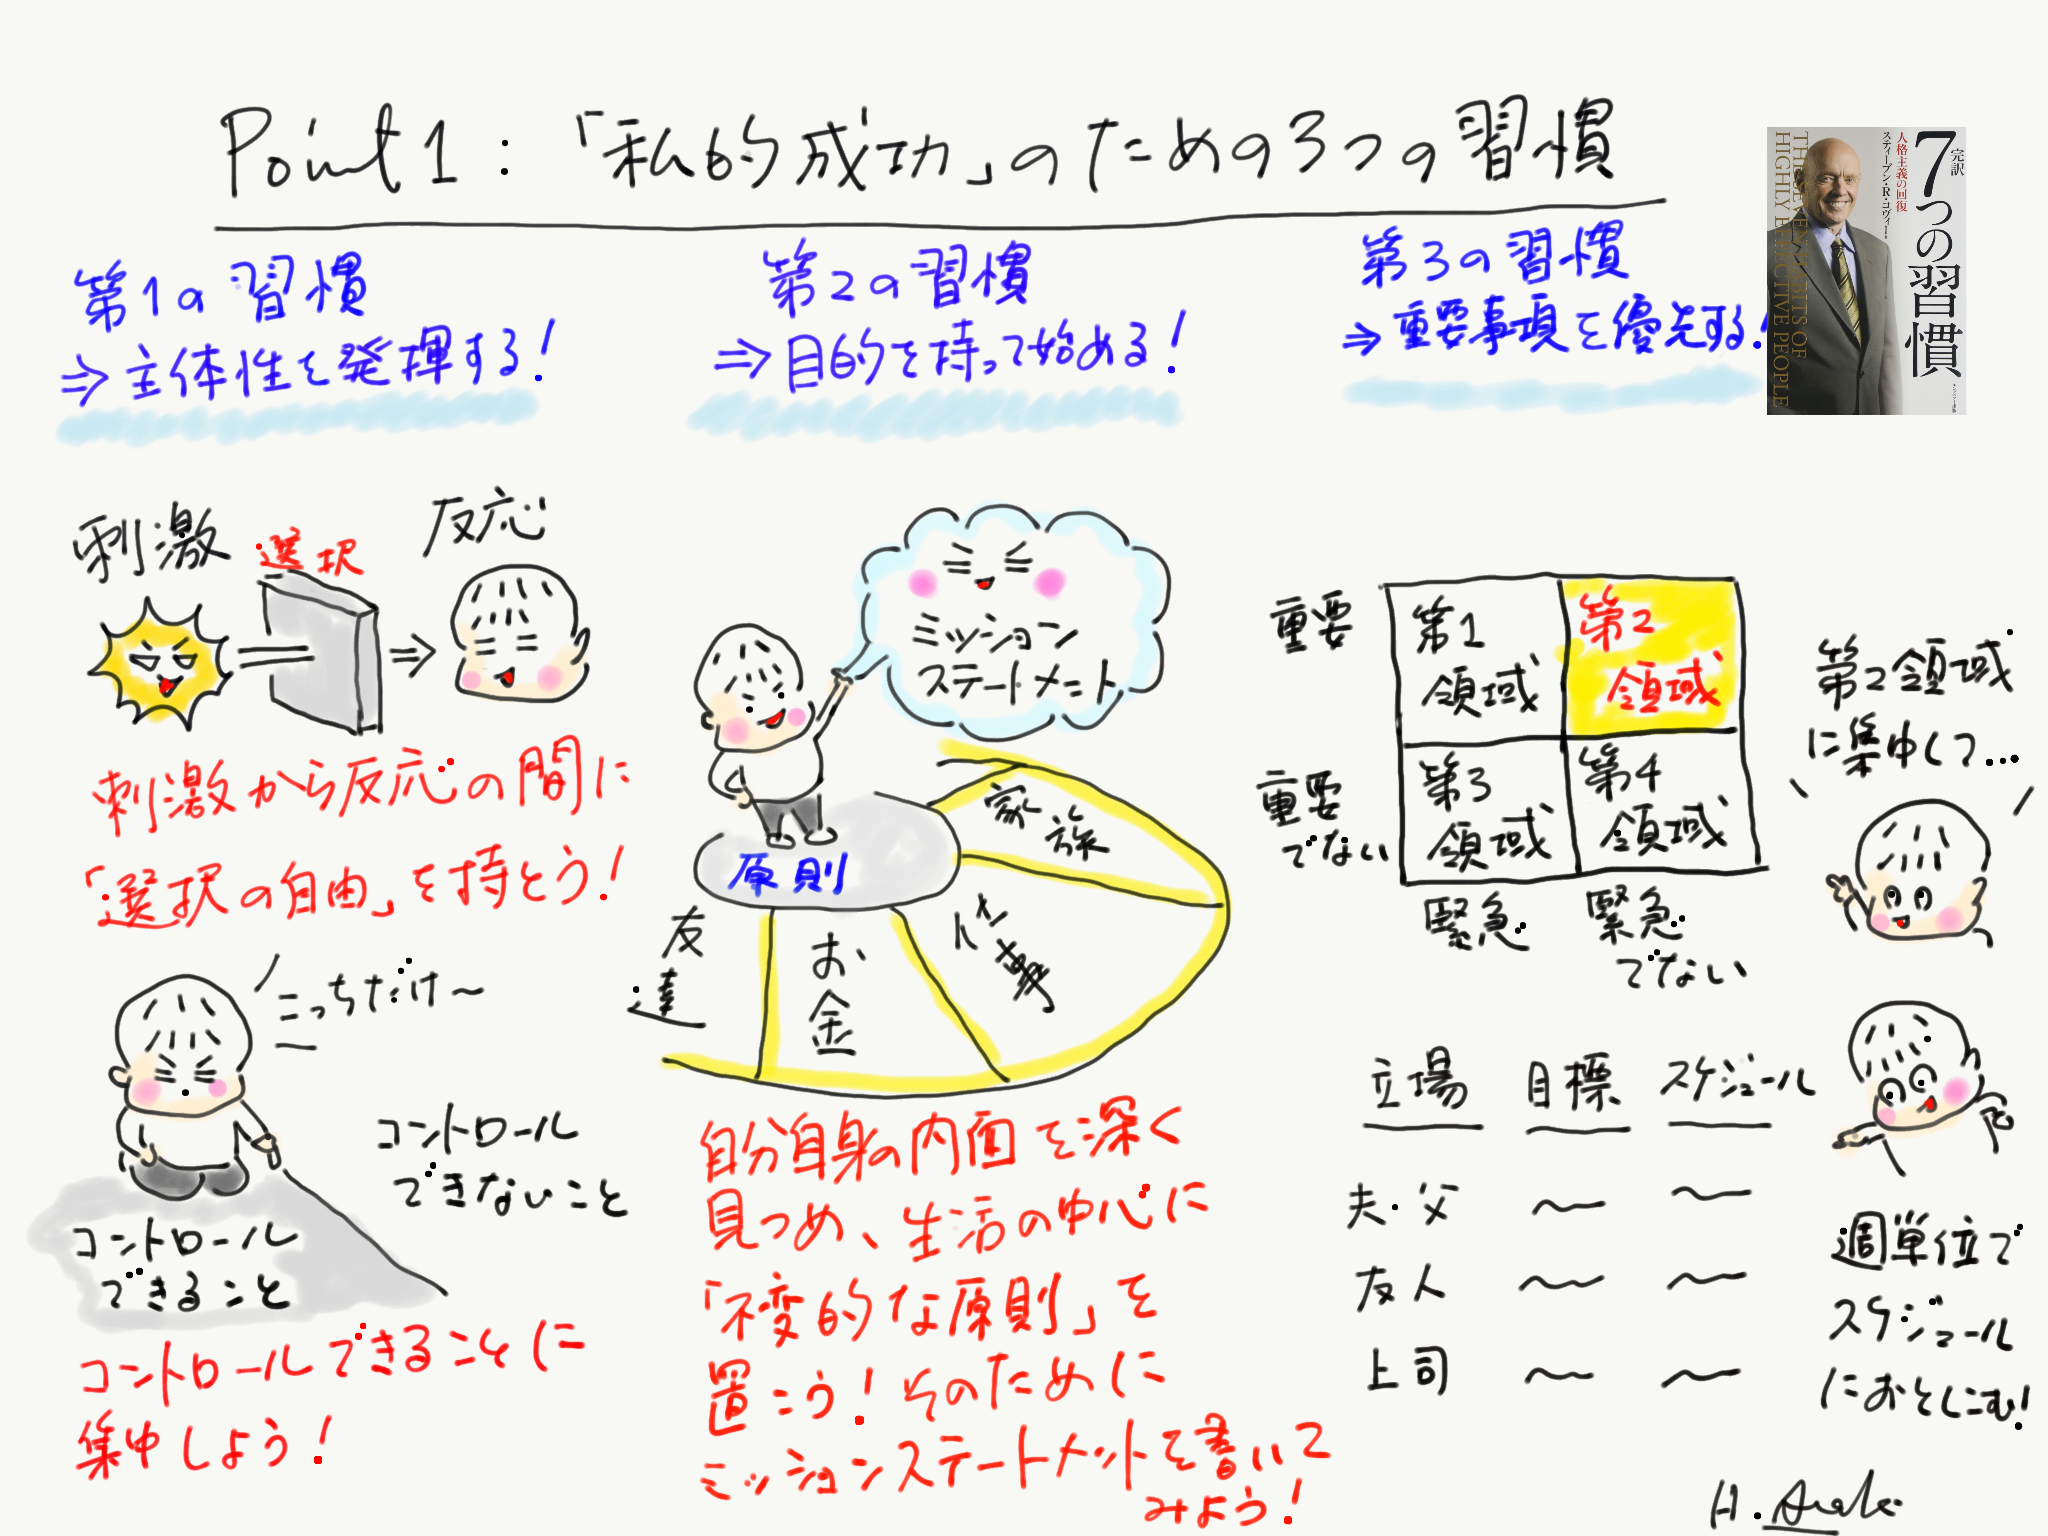 Point1:「私的成功」のための3つの習慣
完訳
7つの習慣
人格主義の回復
スティーブン・R・コヴィー
THE SEVEN HABITS OF
HIGHLY EFFECTIVE PEOPLE
第1の習慣
⇒主体性を発揮する!
刺激
選択
反応
刺激から反応の間に
「選択の自由」を持とう!
こっちだけ〜
コントロール
できないこと
コントロール
できること
コントロールできることに
集中しよう!
第2の習慣
⇒目的を持って始める!
ミッション
ステートメント
原則
家族
仕事
お金
友達
自分自身の内面を深く
見つめ、生活の中心に
「不変的な原則」を
置こう!そのために
ミッションステートメットを書いて
みよう!
第3の習慣
⇒重要事項を優先する!
重要
第1
領域
第2
領域
重要
でない
第3
領域
第4
領域
緊急
緊急
でない
第2領域
に集中して...
立場 目標 スケジュール
夫・父 〜 〜
友人 〜 〜
上司 〜 〜
週単位で
スケジュール
におとしこむ!